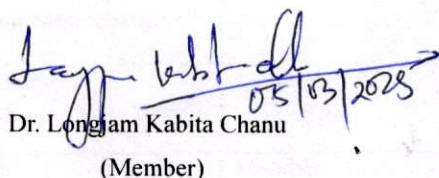 05/03/2025
Dr. Longjam Kabita Chanu
(Member)